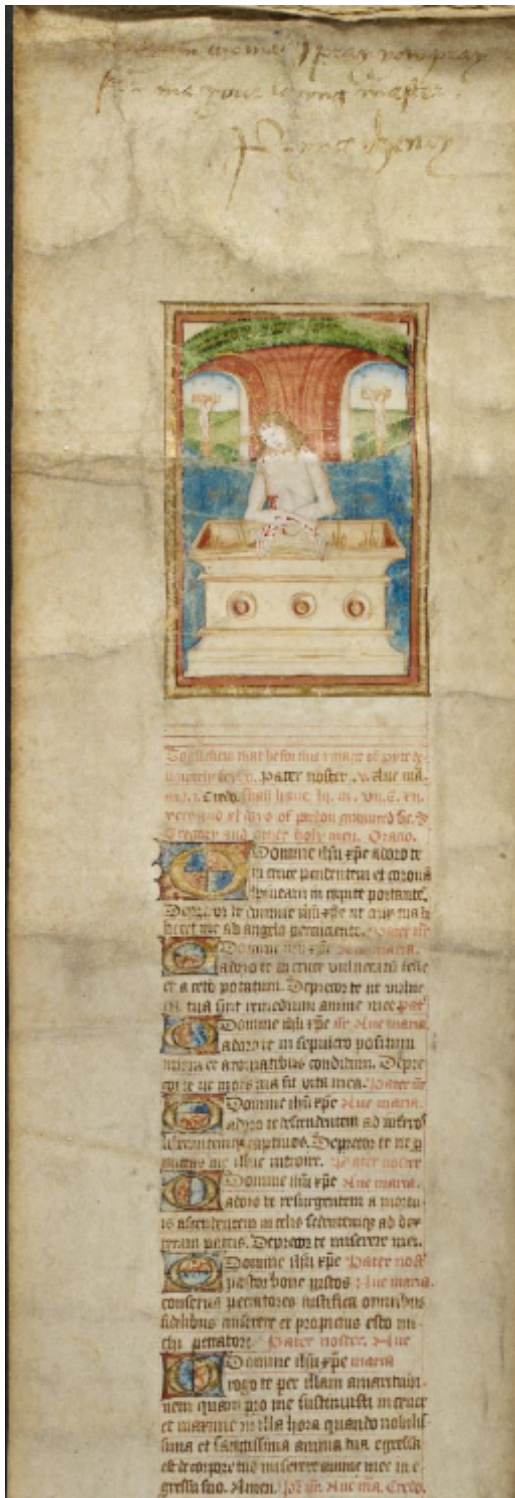 I pray yow pray
for me your lovyng master
Prynce Henry
To all them that before this ymage of pyte de-
voutely sey v. Pater noster v. Aue ma.
Credo. shall haue
and of pardon graunted be S.
Gregory and other holy men. Oracio.
Domine ihu xpe adoro te
in cruce pendentem et corona
spineam in capite portante.
Deprecor te domine ihu xpe ut crux tua li
beret me ab angelo percuciente. Pater nr
Domine ihu xpe Aue maria.
adoro te in cruce vulneratu felle
et aceto potatum. Deprecor te ut vulne
ra tua sint remedium anime mee Pr
Domine ihu xpe nr Aue maria
adoro te in sepulcro positum
mirra et aromatibus conditum. Depre
cor te ut mors tua sit vita mea. Pater nr
Domine ihu xpe Aue maria.
adoro te descendentem ad inferos
liberantemq captiuos. Deprecor te ne p
mittas me illuc introire. Pater noster
Domine ihu xpe Aue maria.
adoro te resurgentem a mortu-
is ascendentem in celis sedentemq ad dex-
teram patris. Deprecor te miserere mei.
Domine ihu xpe Pater nost
pastor bone iustos Aue maria.
conserua peccatores iustifica omnibus
fidelibus miserere et propicius esto mi-
chi peccatore. Pater noster. Aue
Domine ihu xpe maria
rogo te per illam amaritudi-
nem quam pro me sustinuisti in cruce
et maxime in illa hora quando nobilis-
sima et sanctissima anima tua egressa
est de corpore tuo miserere anime mee in e-
gressu suo. Amen. Pr nr. Aue ma. Credo.